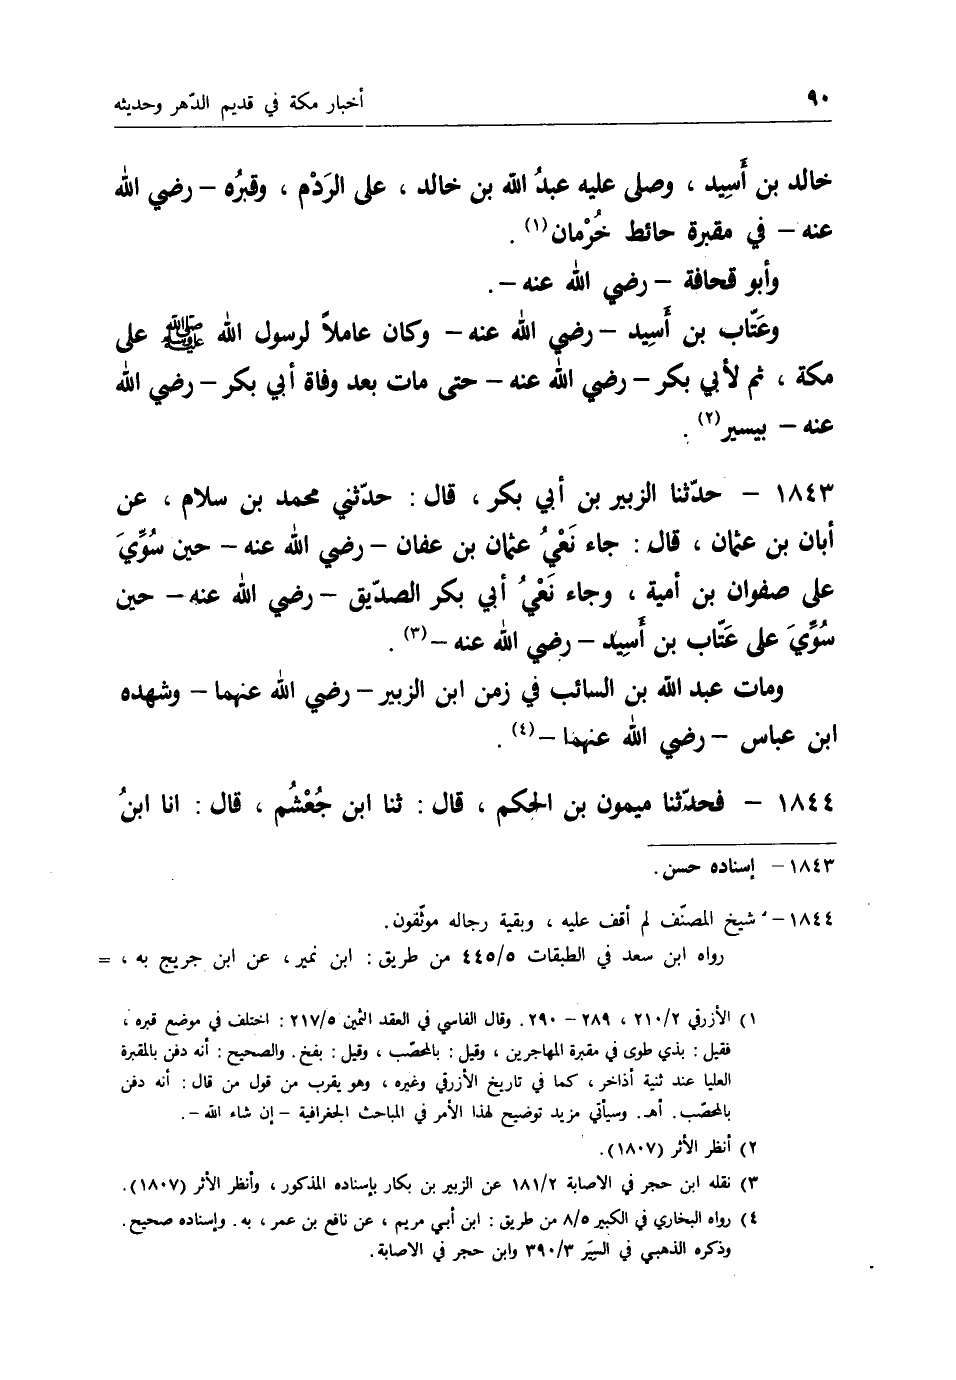 ٩٠
أخبار مكة في قديم الدّهر وحديثه
خالد بن أَسِيد ، وصلى عليه عبدُ الله بن خالد ، على الرَدْم ، وقبرُه – رضي الله
عنه – في مقبرة حائط خُرْمان(١) .
وأبو قحافة – رضي الله عنه –.
وعَتّاب بن أَسِيد – رضي الله عنه – وكان عاملاً لرسول الله ﷺ على
مكة ، ثم لأبي بكر – رضي الله عنه – حتى مات بعد وفاة أبي بكر – رضي الله
عنه – بيسير(٢) .
١٨٤٣ – حدّثنا الزبير بن أبي بكر ، قال : حدّثني محمد بن سلام ، عن
أبان بن عثمان ، قال : جاء نَعْيُ عثمان بن عفان – رضي الله عنه – حين سُوِّيَ
على صفوان بن أمية ، وجاء نَعْيُ أبي بكر الصدّيق – رضي الله عنه – حين
سُوِّيَ على عَتّاب بن أَسِيد – رضي الله عنه –(٣) .
ومات عبد الله بن السائب في زمن ابن الزبير – رضي الله عنهما – وشهده
ابن عباس – رضي الله عنهما –(٤) .
١٨٤٤ – فحدّثنا ميمون بن الحكم ، قال : ثنا ابن جُعْشُم ، قال : انا ابنُ
١٨٤٣– إسناده حسن .
١٨٤٤– شيخ المصنّف لم أقف عليه ، وبقية رجاله موثّقون .
رواه ابن سعد في الطبقات ٤٤٥/٥ من طريق : ابن نمير ، عن ابن جريج به ، =
١) الأزرقي ٢١٠/٢ ، ٢٨٩ – ٢٩٠ . وقال الفاسي في العقد الثمين ٢١٧/٥ : اختلف في موضع قبره ،
فقيل : بذي طوى في مقبرة المهاجرين ، وقيل : بالمحصّب ، وقيل : بفخ . والصحيح : أنه دفن بالمقبرة
العليا عند ثنية أذاخر ، كما في تاريخ الأزرقي وغيره ، وهو يقرب من قول من قال : أنه دفن
بالمحصّب . أهـ . وسيأتي مزيد توضيح لهذا الأمر في المباحث الجغرافية – إن شاء الله – .
٢) أنظر الأثر (١٨٠٧) .
٣) نقله ابن حجر في الاصابة ١٨١/٢ عن الزبير بن بكار بإسناده المذكور ، وأنظر الأثر (١٨٠٧) .
٤) رواه البخاري في الكبير ٨/٥ من طريق : ابن أبي مريم ، عن نافع بن عمر ، به . وإسناده صحيح .
وذكره الذهبي في السِيَر ٣٩٠/٣ وابن حجر في الاصابة .